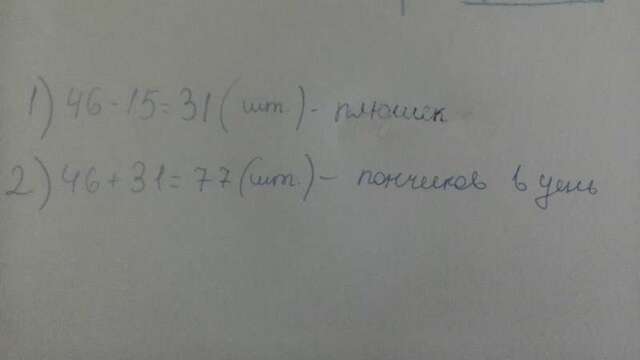 1) 46-15=31(шт.)- плюшек
2) 46+31=77(шт.)- пончиков в день